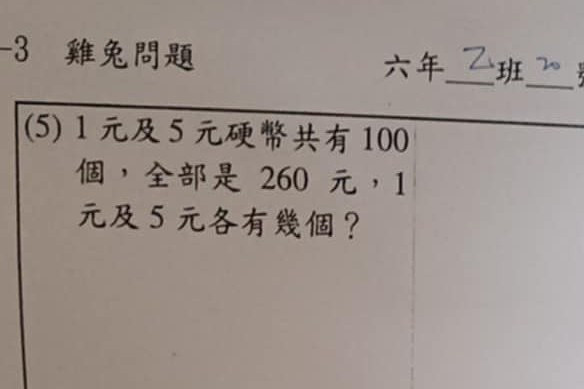 -3 雞兔問題
六年乙班20號
(5) 1元及5元硬幣共有100
個，全部是 260 元，1
元及5元各有幾個？